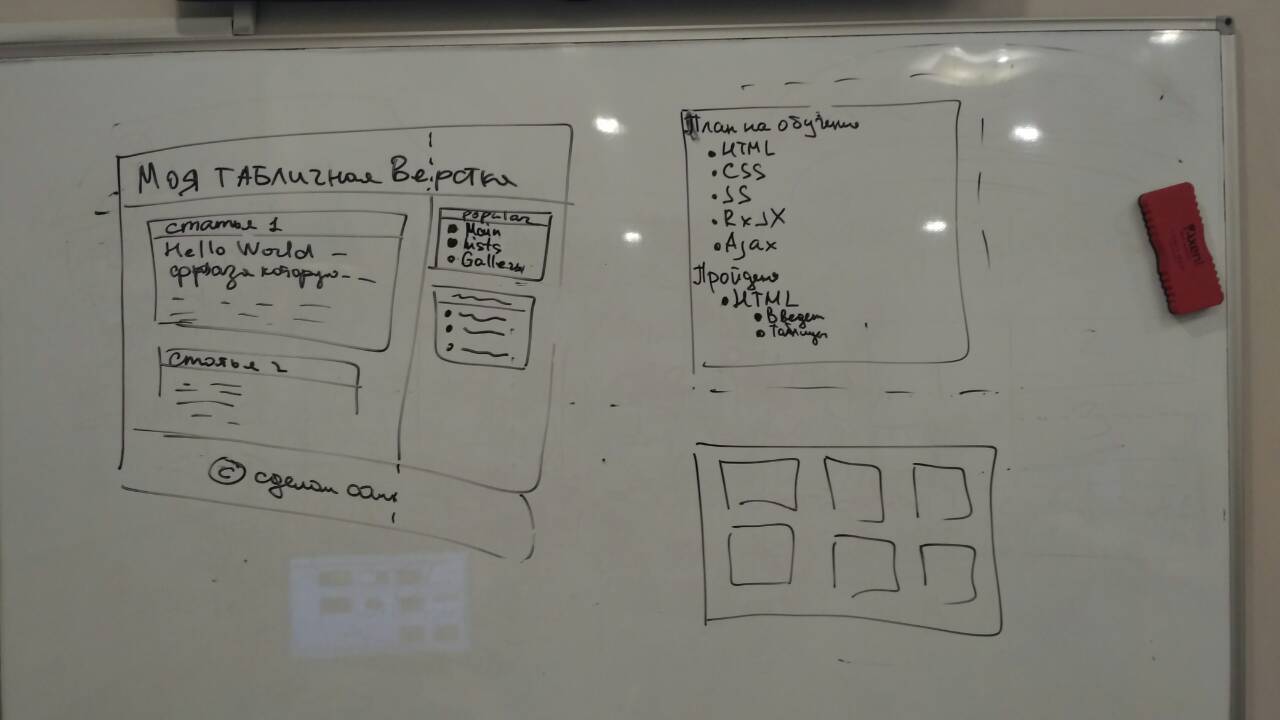 Моя ТАБЛИЧНАЯ Верстка
статья 1
Hello World
фраза которую
статья 2
popular
Main
Lists
Gallery
© сделал сам
План на обучение
HTML
CSS
JS
RxJX
Ajax
Пройдено
HTML
Введен
Таблицы